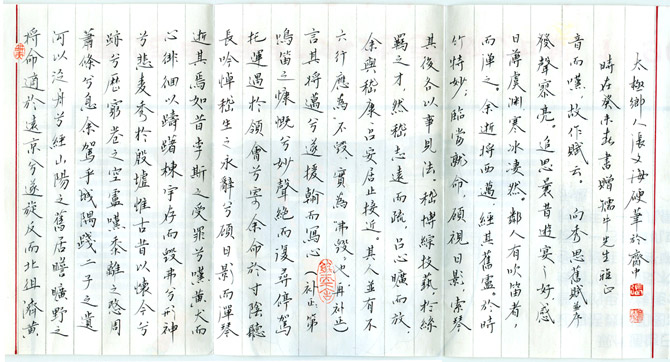 將命適於遠京兮遂旋反而北徂濟黃
河以泛舟兮經山陽之舊居瞻曠野之
蕭條兮息余駕乎城隅踐二子之遺
跡兮歷窮巷之空廬嘆黍離之愍周
兮悲麥秀於殷墟惟古昔以懷今兮
心徘徊以躊躇棟宇存而毀弗兮形神
逝其焉如昔李斯之受罪兮嘆黃犬而
長吟悼嵇生之永辭兮顧日影而彈琴
托運遇於領會兮寄余命於寸陰聽
鳴笛之慷慨兮妙聲絕而復尋停駕
言其將邁兮遂援翰而寫心（補正。第
六行應為不毀，實為弗毀也，再補正）
余與嵇康、呂安居止接近。其人並有不
羈之才，然嵇志遠而疏，呂心曠而放，
其後各以事見法。嵇博綜技藝，於絲
竹特妙；臨當就命，顧視日影，索琴
而彈之。余逝將西邁，經其舊廬。於時
日薄虞淵寒冰淒然。鄰人有吹笛者，
發聲寥亮。追思曩昔遊宴之好，感
音而嘆，故作賦云。 向秀思舊賦并序
時在癸未春書贈 先生雅正
太極鄉人張文海硬筆於齋中